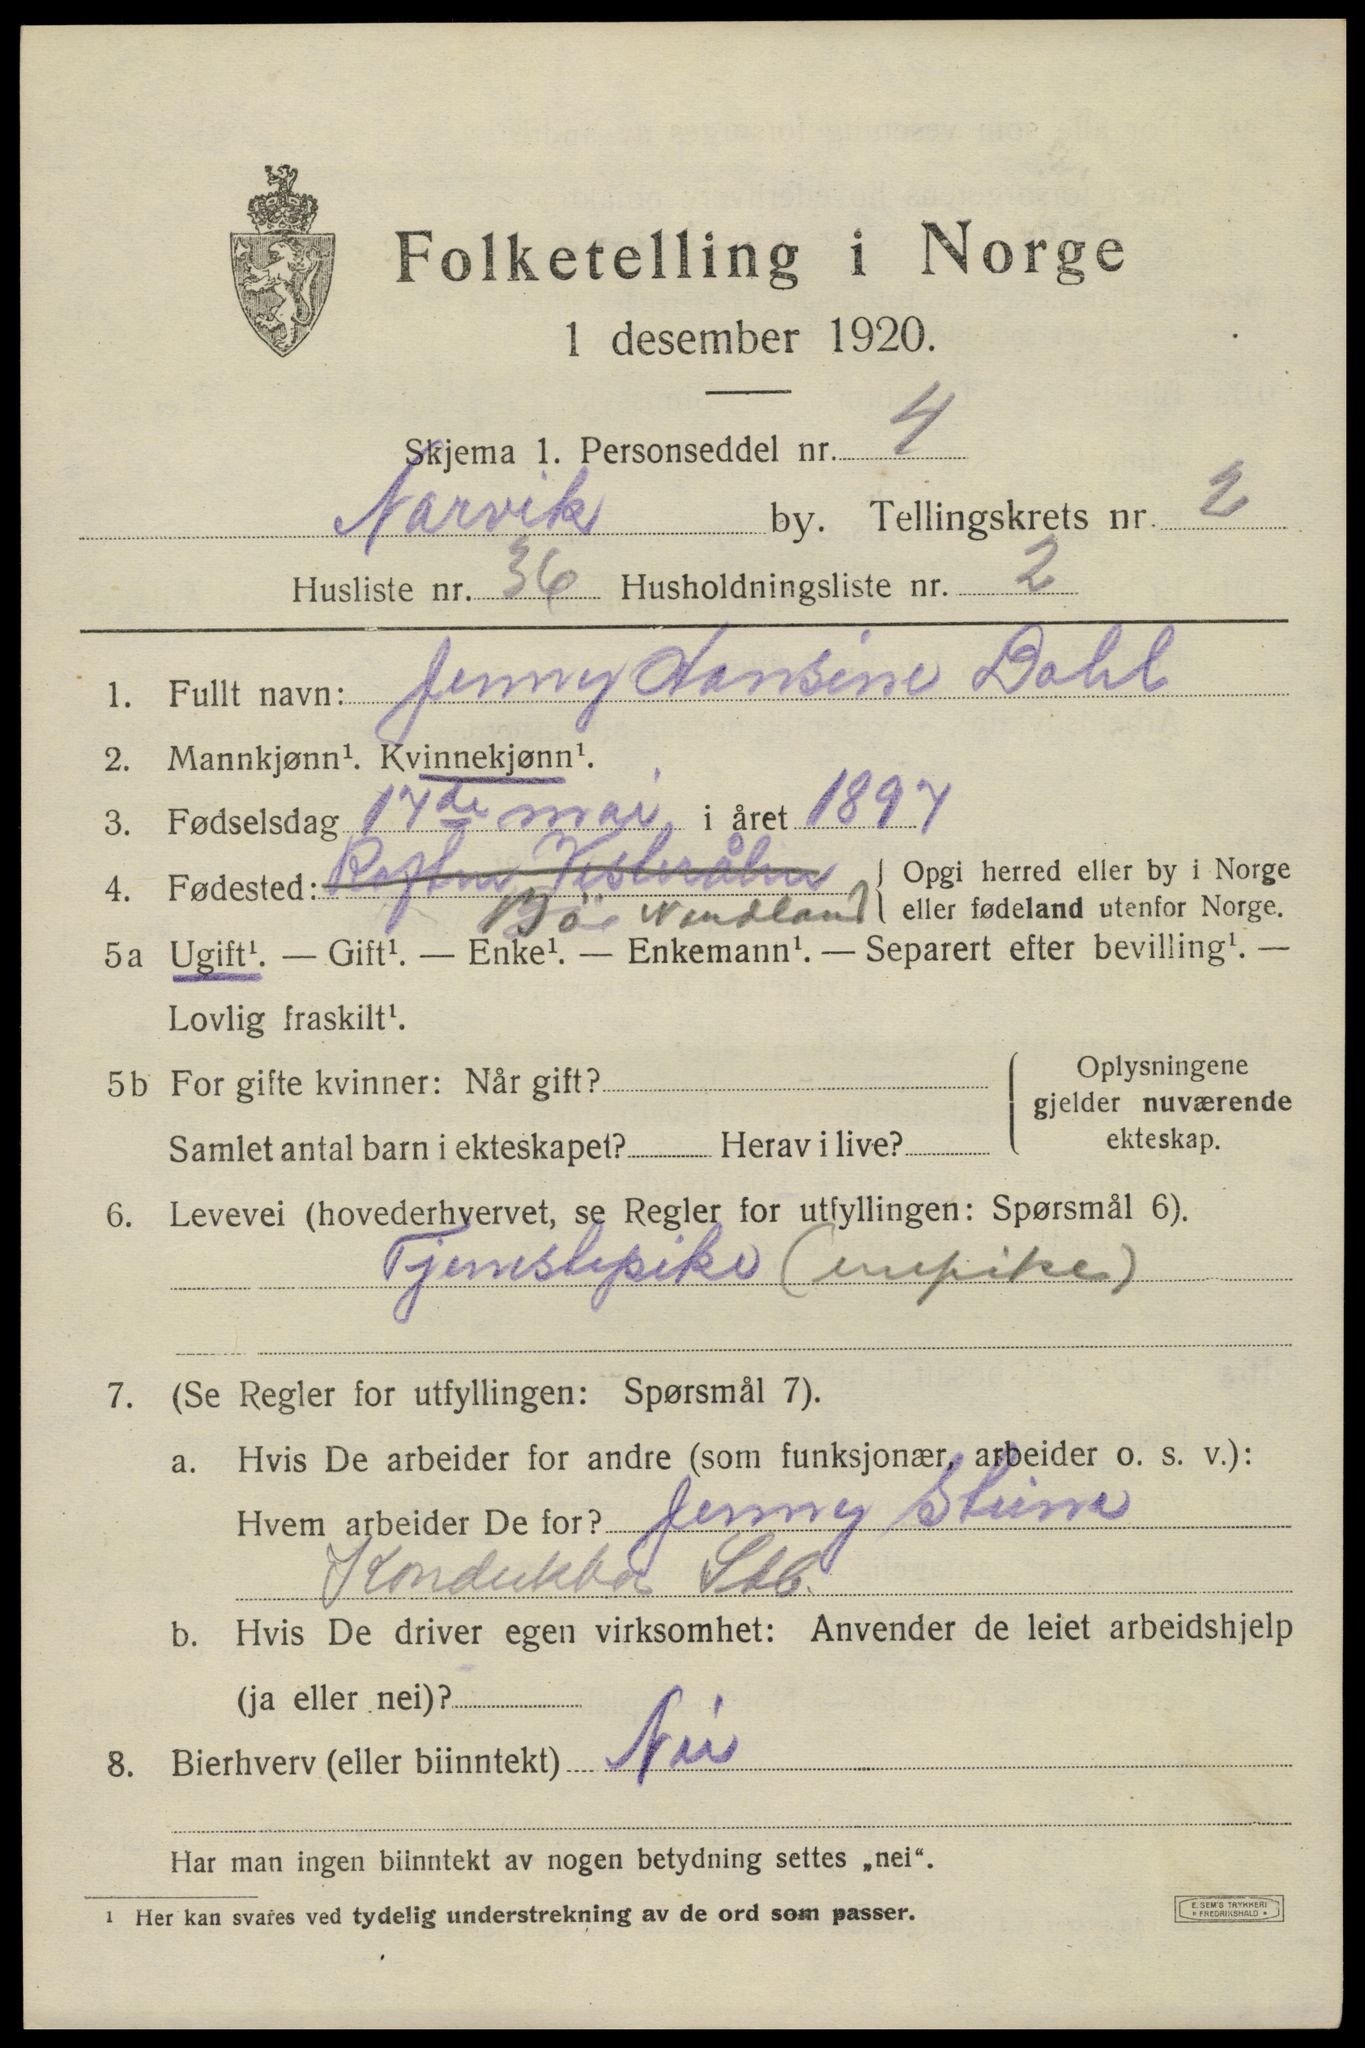 Folketelling i Norge
1 desember 1920.
Skjema 1. Personseddel nr. 4
Narvik by. Tellingskrets nr. 2
Husliste nr. 36 Husholdningsliste nr. 2
1. Fullt navn: Jenny Hansine Dahl
2. Mannkjønn¹. Kvinnekjønn¹.
3. Fødselsdag 17de mai i året 1897
4. Fødested: Vesterålen { Opgi herred eller by i Norge
Bö Nordland eller fødeland utenfor Norge.
5a Ugift¹. — Gift¹. — Enke¹. — Enkemann¹. — Separert efter bevilling¹. —
Lovlig fraskilt¹.
5b For gifte kvinner: Når gift? Oplysningene
gjelder nuværende
Samlet antal barn i ekteskapet? Herav i live? ekteskap.
6. Levevei (hovederhvervet, se Regler for utfyllingen: Spørsmål 6).
Tjenestepike (enepike)
7. (Se Regler for utfyllingen: Spørsmål 7).
a. Hvis De arbeider for andre (som funksjonær, arbeider o. s. v.):
Hvem arbeider De for? Jenny
Konduktør
b. Hvis De driver egen virksomhet: Anvender de leiet arbeidshjelp
(ja eller nei)?
8. Bierhverv (eller biinntekt) Nei
Har man ingen biinntekt av nogen betydning settes „nei“.
¹ Her kan svares ved tydelig understrekning av de ord som passer.
E. SEM'S TRYKKERI
* FREDRIKSHALD *